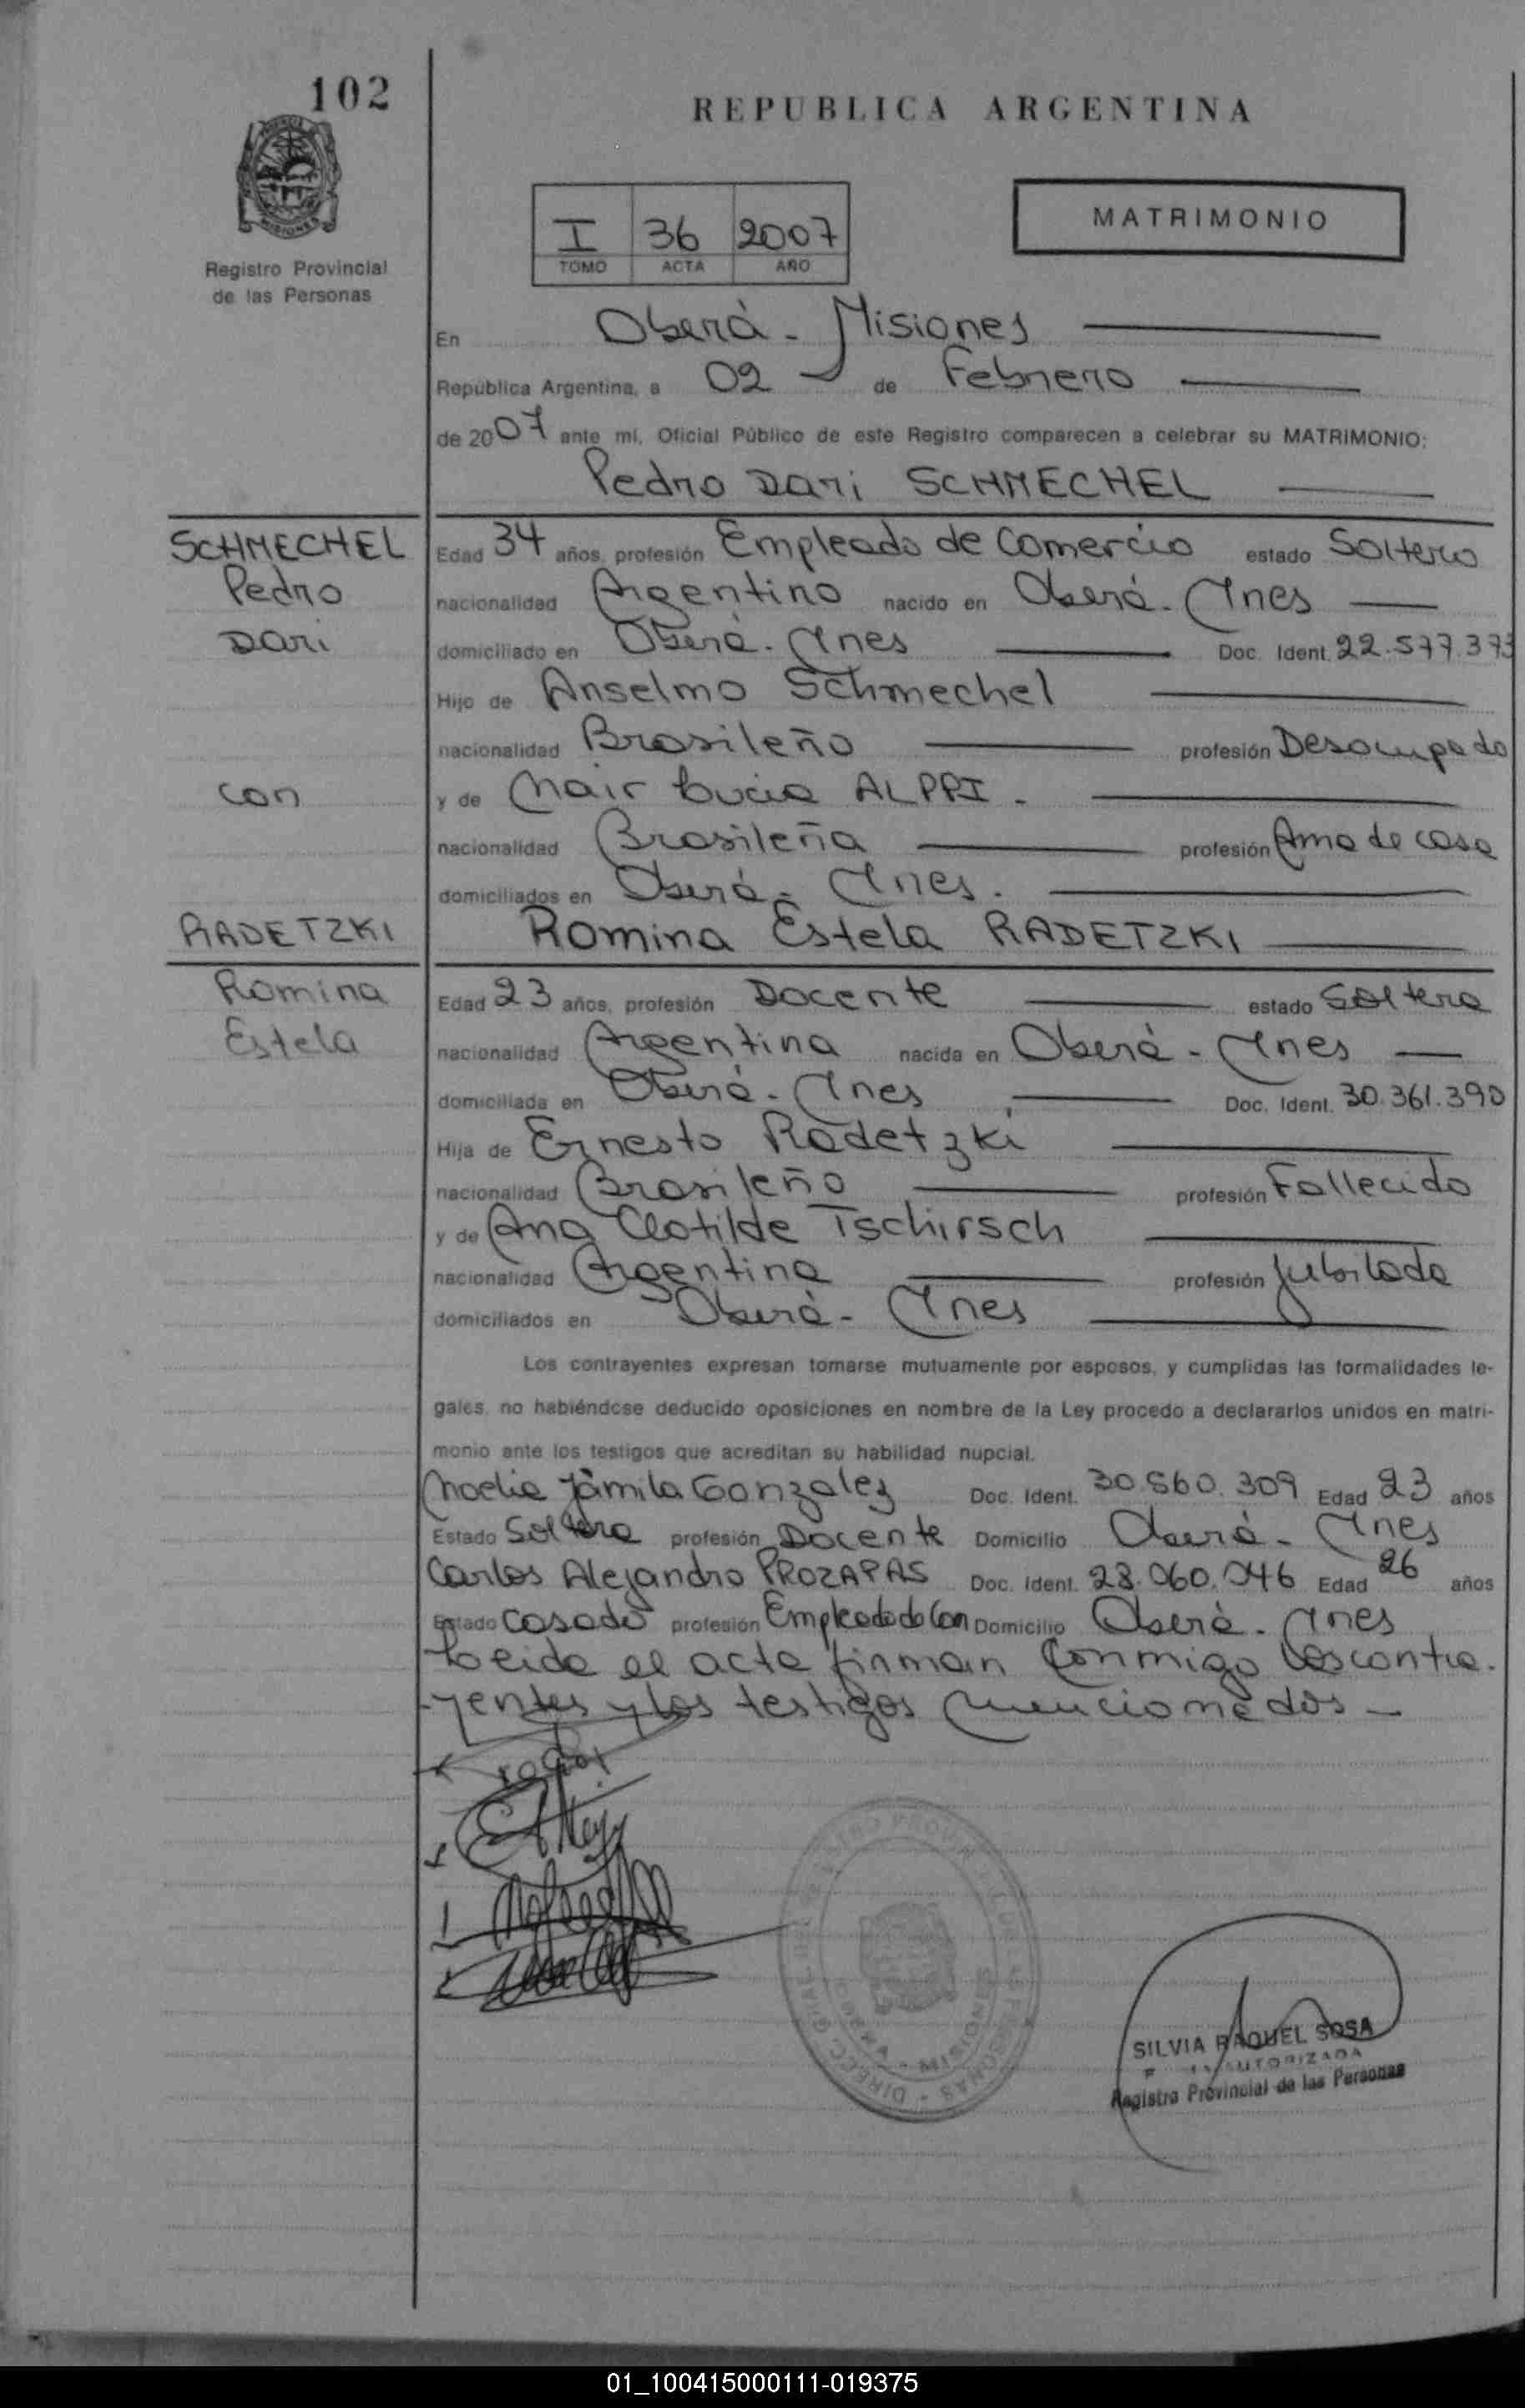 102
REPUBLICA ARGENTINA
Registro Provincial
de las Personas
I 36 2007
TOMO ACTA AÑO
MATRIMONIO
En Oberà - Misiones
República Argentina, a 02 de Febrero
de 2007 ante mi, Oficial Público de este Registro comparecen a celebrar su MATRIMONIO:
Pedro Dari SCHMECHEL
SCHMECHEL
Pedro
Dari
con
RADETZKI
Romina
Estela
Edad 34 años, profesión Empleado de Comercio estado Soltero
nacionalidad Argentino nacido en Oberá - Mnes
domiciliado en Oberá - Mnes Doc. Ident. 22.577.373
Hijo de Anselmo Schmechel
nacionalidad Brasileño profesión Desocupado
y de Nair Lucia
nacionalidad Brasileña profesión Ama de casa
domiciliados en Oberá - Mnes.
Romina Estela RADETZKI
Edad 23 años, profesión Docente estado Soltera
nacionalidad Argentina nacida en Oberá - Mnes
domiciliada en Oberá - Mnes Doc. Ident. 30.361.390
Hija de Ernesto Radetzki
nacionalidad Brasileño profesión Fallecido
y de Ana Clotilde Tschirsch
nacionalidad Argentina profesión Jubilada
domiciliados en Oberà - Mnes
Los contrayentes expresan tomarse mutuamente por esposos, y cumplidas las formalidades le-
gales, no habiéndose deducido oposiciones en nombre de la Ley procedo a declararlos unidos en matri-
monio ante los testigos que acreditan su habilidad nupcial.
Noelia Jamila Gonzalez Doc. Ident. 30.560.309 Edad 23 años
Estado Soltera profesión Docente Domicilio Oberá - Mnes
Carlos Alejandro PROZAPAS Doc. Ident. 28.060.046 Edad 26 años
Estado Casado profesión Empleado de Com Domicilio Oberà - Mnes
Leida el acta firman conmigo los contra-
yentes y los testigos mencionados -
SILVIA RAQUEL SOSA
AUTORIZADA
Registro Provincial de las Personas
01_100415000111-019375